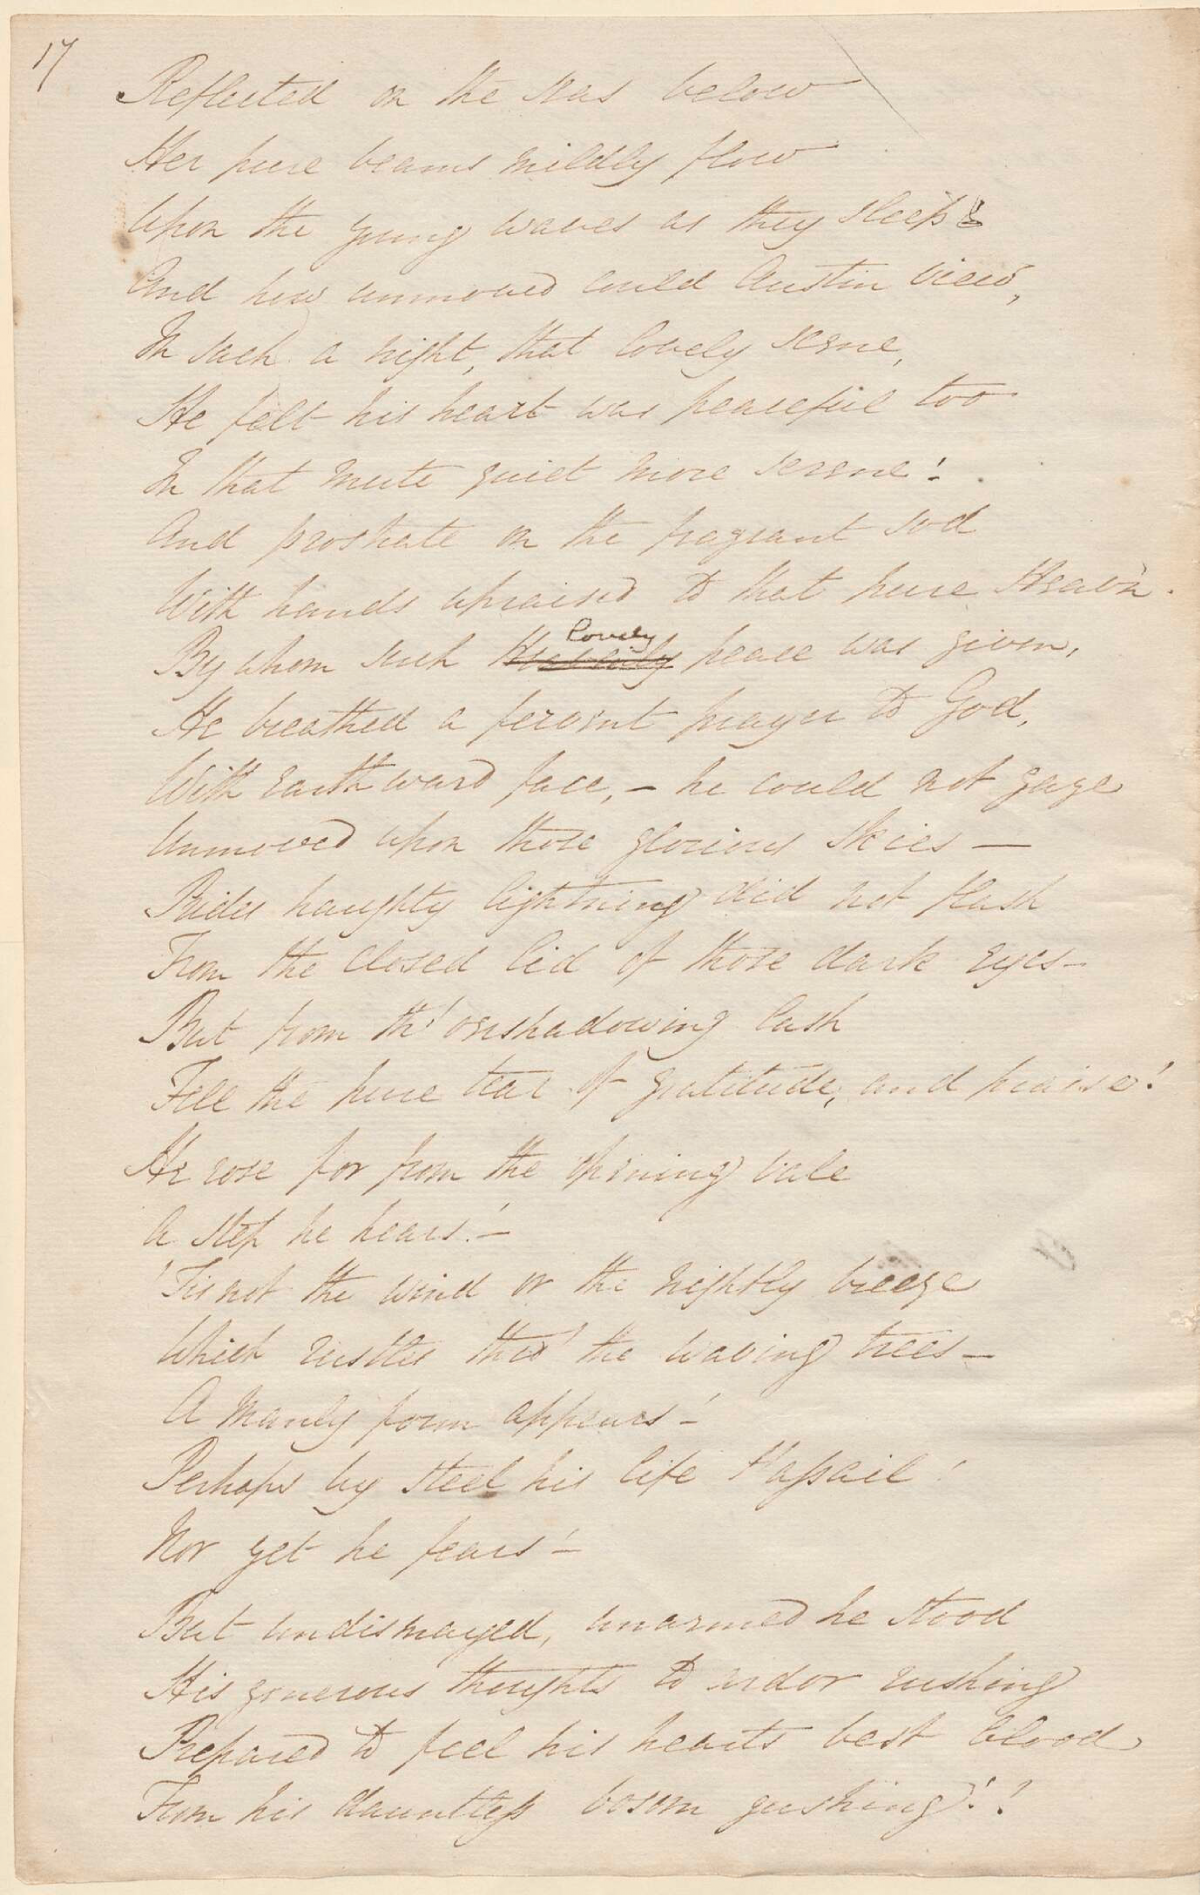 17
Reflected on the seas below
Her pure beams mildly flow
Upon the young waves as they sleep!
And how unmoved could Austin view,
In such a night, that lovely scene,
He felt his heart was peaceful too
In that mute quiet more serene!
And prostrate on the fragrant sod
With hands upraised to that pure Heav'n.
Lovely
By whom such Heavenly peace was given,
He breathed a fervent prayer to God,
With earthward face, – he could not gaze
Unmoved upon those glorious skies –
Prides haughty lightning did not flash
From the closed lid of those dark eyes –
But from th' o'ershadowing lash
Fell the pure tear of gratitude, and praise!
He rose for from the opening vale
A step he hears! –
'Tis not the wind or the nightly breeze
Which rustles thro' the waving trees –
A manly form appears! –
Perhaps by steel his life t'assail!
Nor yet he fears! –
But undismayed, unarmed he stood
His generous thoughts to ardor rushing
Prepared to feel his hearts best blood
From his dauntless bosom gushing!!